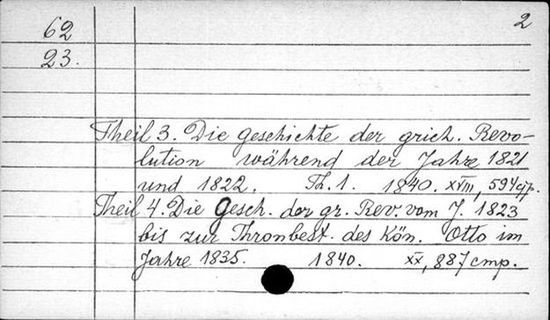 62 2
23.
Theil 3. Die geschichte der grich. Revo-
lution während der Jahre 1821
und 1822. Th. 1. 1840. XVIII, 594 стр.
Theil 4. Die Gesch. der gr. Rev. vom J. 1823
bis zur Thronbest. des Kön. Otto im
Jahre 1835. 1840. XX, 887 стр.